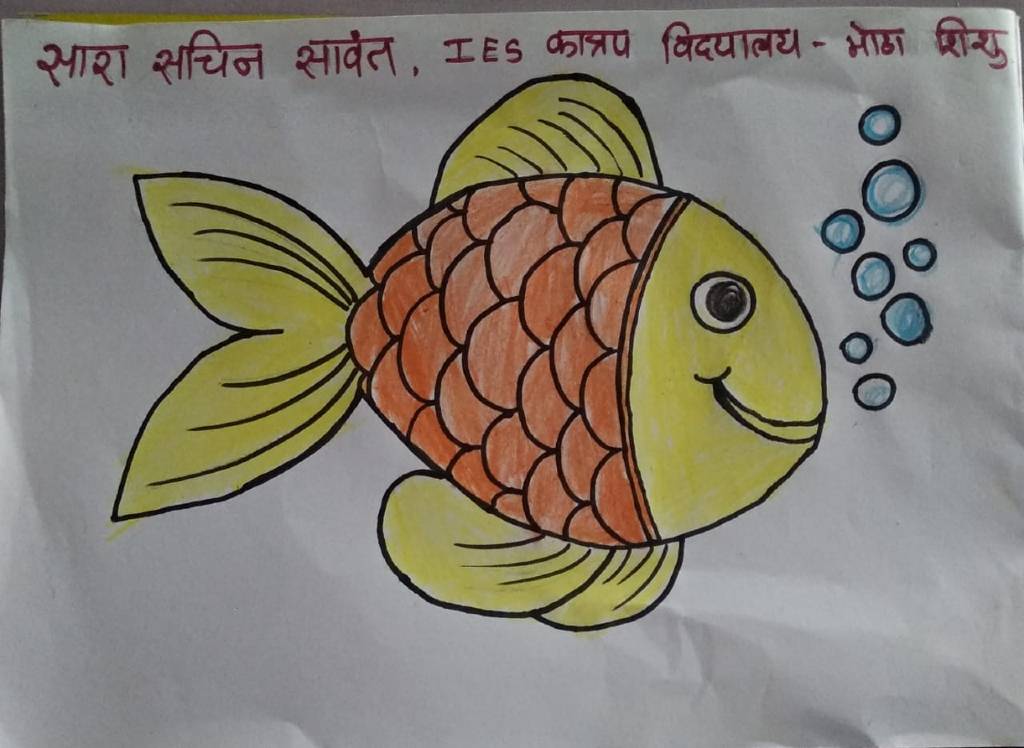 सारा सचिन सावंत, IES कात्रप विदयालय - मोठा शिशु